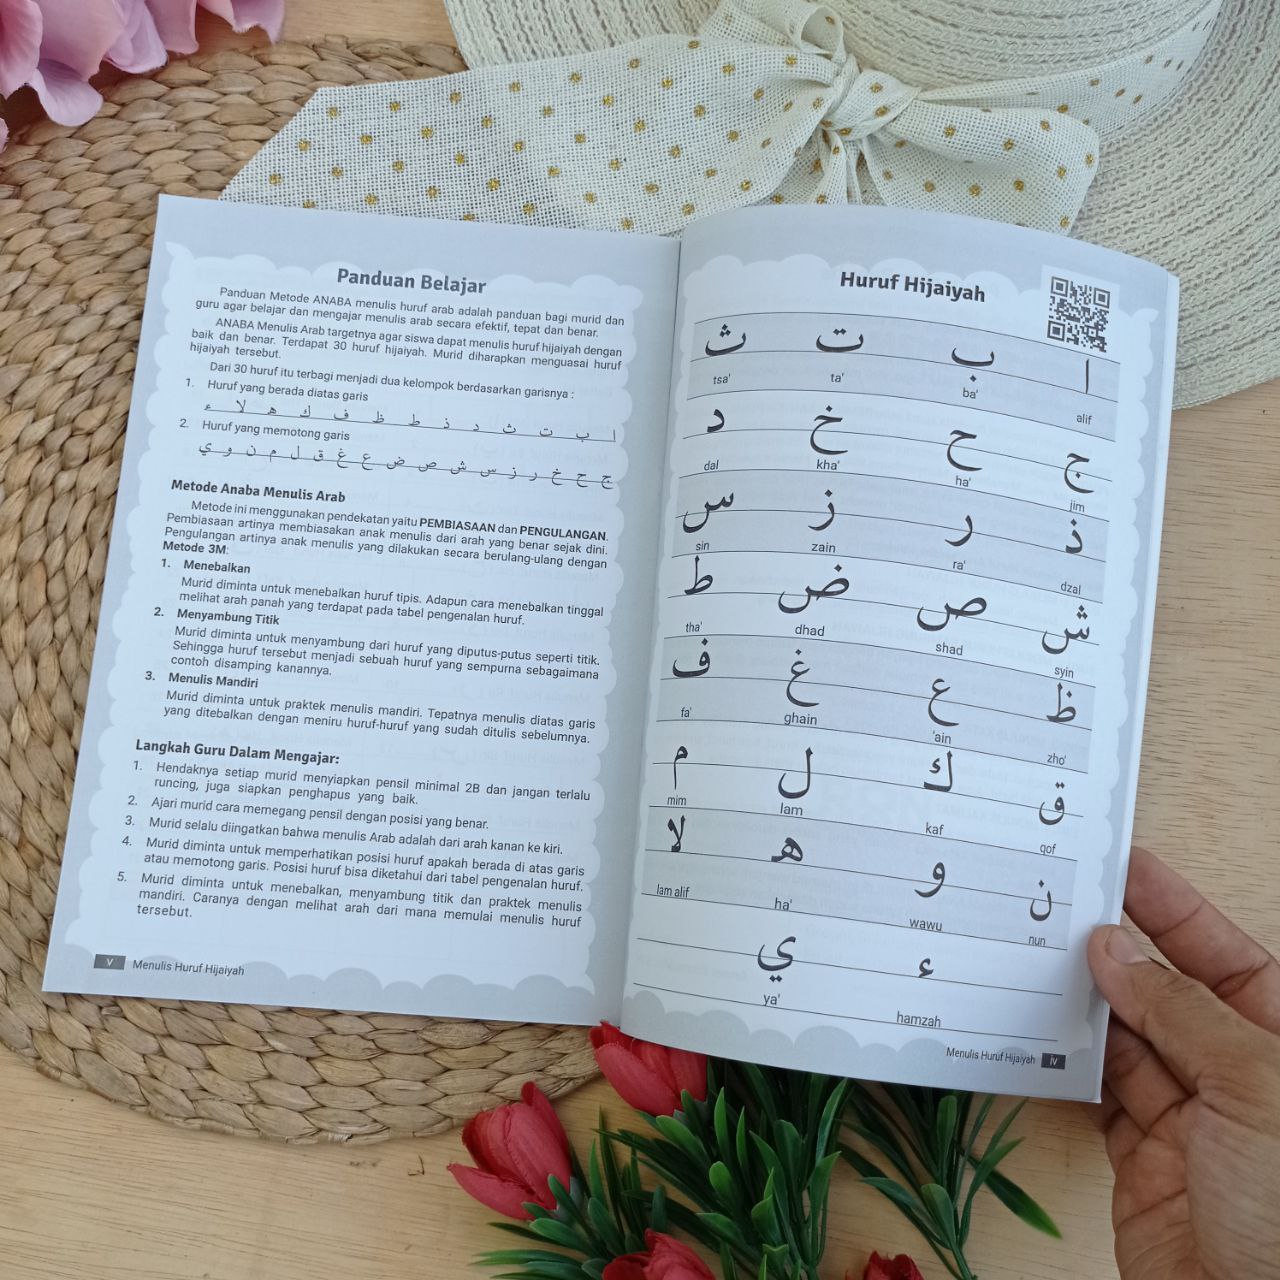 Panduan Belajar
Panduan Metode ANABA menulis huruf arab adalah panduan bagi murid dan
guru agar belajar dan mengajar menulis arab secara efektif, tepat dan benar.
ANABA Menulis Arab targetnya agar siswa dapat menulis huruf hijaiyah dengan
baik dan benar. Terdapat 30 huruf hijaiyah. Murid diharapkan menguasai huruf
hijaiyah tersebut.
Dari 30 huruf itu terbagi menjadi dua kelompok berdasarkan garisnya :
1. Huruf yang berada diatas garis
ا ب ت ث د ذ ط ظ ف ك ه لا ء
2. Huruf yang memotong garis
ج ح خ ر ز س ش ص ض ع غ ق ل م ن و ي
Metode Anaba Menulis Arab
Metode ini menggunakan pendekatan yaitu PEMBIASAAN dan PENGULANGAN.
Pembiasaan artinya membiasakan anak menulis dari arah yang benar sejak dini.
Pengulangan artinya anak menulis yang dilakukan secara berulang-ulang dengan
Metode 3M:
1. Menebalkan
Murid diminta untuk menebalkan huruf tipis. Adapun cara menebalkan tinggal
melihat arah panah yang terdapat pada tabel pengenalan huruf.
2. Menyambung Titik
Murid diminta untuk menyambung dari huruf yang diputus-putus seperti titik.
Sehingga huruf tersebut menjadi sebuah huruf yang sempurna sebagaimana
contoh disamping kanannya.
3. Menulis Mandiri
Murid diminta untuk praktek menulis mandiri. Tepatnya menulis diatas garis
yang ditebalkan dengan meniru huruf-huruf yang sudah ditulis sebelumnya.
Langkah Guru Dalam Mengajar:
1. Hendaknya setiap murid menyiapkan pensil minimal 2B dan jangan terlalu
runcing, juga siapkan penghapus yang baik.
2. Ajari murid cara memegang pensil dengan posisi yang benar.
3. Murid selalu diingatkan bahwa menulis Arab adalah dari arah kanan ke kiri.
4. Murid diminta untuk memperhatikan posisi huruf apakah berada di atas garis
atau memotong garis. Posisi huruf bisa diketahui dari tabel pengenalan huruf.
5. Murid diminta untuk menebalkan, menyambung titik dan praktek menulis
mandiri. Caranya dengan melihat arah dari mana memulai menulis huruf
tersebut.
v Menulis Huruf Hijaiyah
Huruf Hijaiyah
ا ب ت ث
tsa' ta' ba' alif
ج ح خ د
dal kha' ha' jim
ذ ر ز س
sin zain ra' dzal
ش ص ض ط
tha' dhad shad syin
ظ ع غ ف
fa' ghain 'ain zho'
ق ك ل م
mim lam kaf qof
ن و ه لا
lam alif ha' wawu nun
ء ي
ya' hamzah
Menulis Huruf Hijaiyah iv